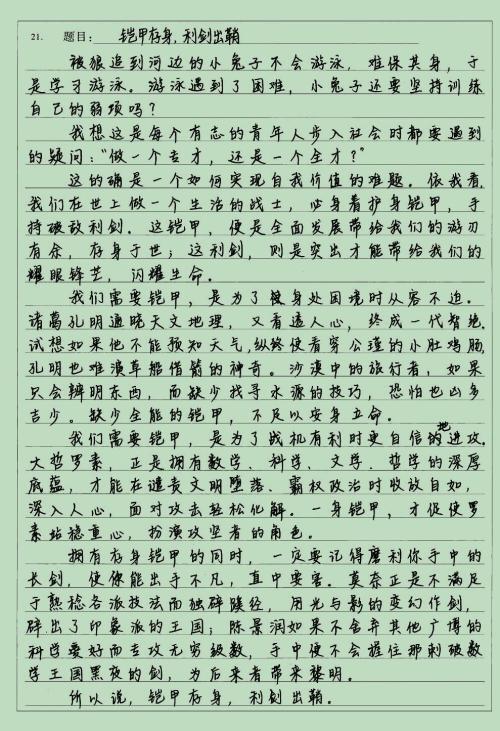 21. 题目：铠甲存身，利剑出鞘
被狼追到河边的小兔子不会游泳，难保其身，于
是学习游泳。游泳遇到了困难，小兔子还要坚持训练
自己的弱项吗？
我想这是每个有志的青年人步入社会时都要遇到
的疑问：“做一个专才，还是一个全才？”
这的确是一个如何实现自我价值的难题。依我看，
我们在世上做一个生活的战士，必身着护身铠甲，手
持破敌利剑。这铠甲，便是全面发展带给我们的游刃
有余，存身于世；这利剑，则是突出才能带给我们的
耀眼锋芒，闪耀生命。
我们需要铠甲，是为了使身处困境时从容不迫。
诸葛孔明通晓天文地理，又看透人心，终成一代智绝。
试想如果他不能预知天气，纵终使看穿公瑾的小肚鸡肠，
孔明也难演草船借箭的神奇。沙漠中的旅行者，如果
只会辨明东西，而缺少找寻水源的技巧，恐怕也凶多
吉少。缺少全能的铠甲，不足以安身立命。
我们需要铠甲，是为了战机有利时更自信地进攻。
大哲罗素，正是拥有数学、科学、文学、哲学的深厚
底蕴，才能在谴责文明堕落、霸权政治时收放自如，
深入人心，面对攻击轻松化解。一身铠甲，才促使罗
素站稳重心，扮演攻坚者的角色。
拥有存身铠甲的同时，一定要记得磨利你手中的
长剑，使你能出手不凡，直中要害。莫奈正是不满足
于熟稔各派技法而独辟蹊径，用光与影的变幻作剑，
辟出了印象派的王国；陈景润如果不舍弃其他广博的
科学要好而去攻无穷级数，手中便不会握住那刺破数
学王国黑夜的剑，为后来者带来黎明。
所以说，铠甲存身，利剑出鞘。